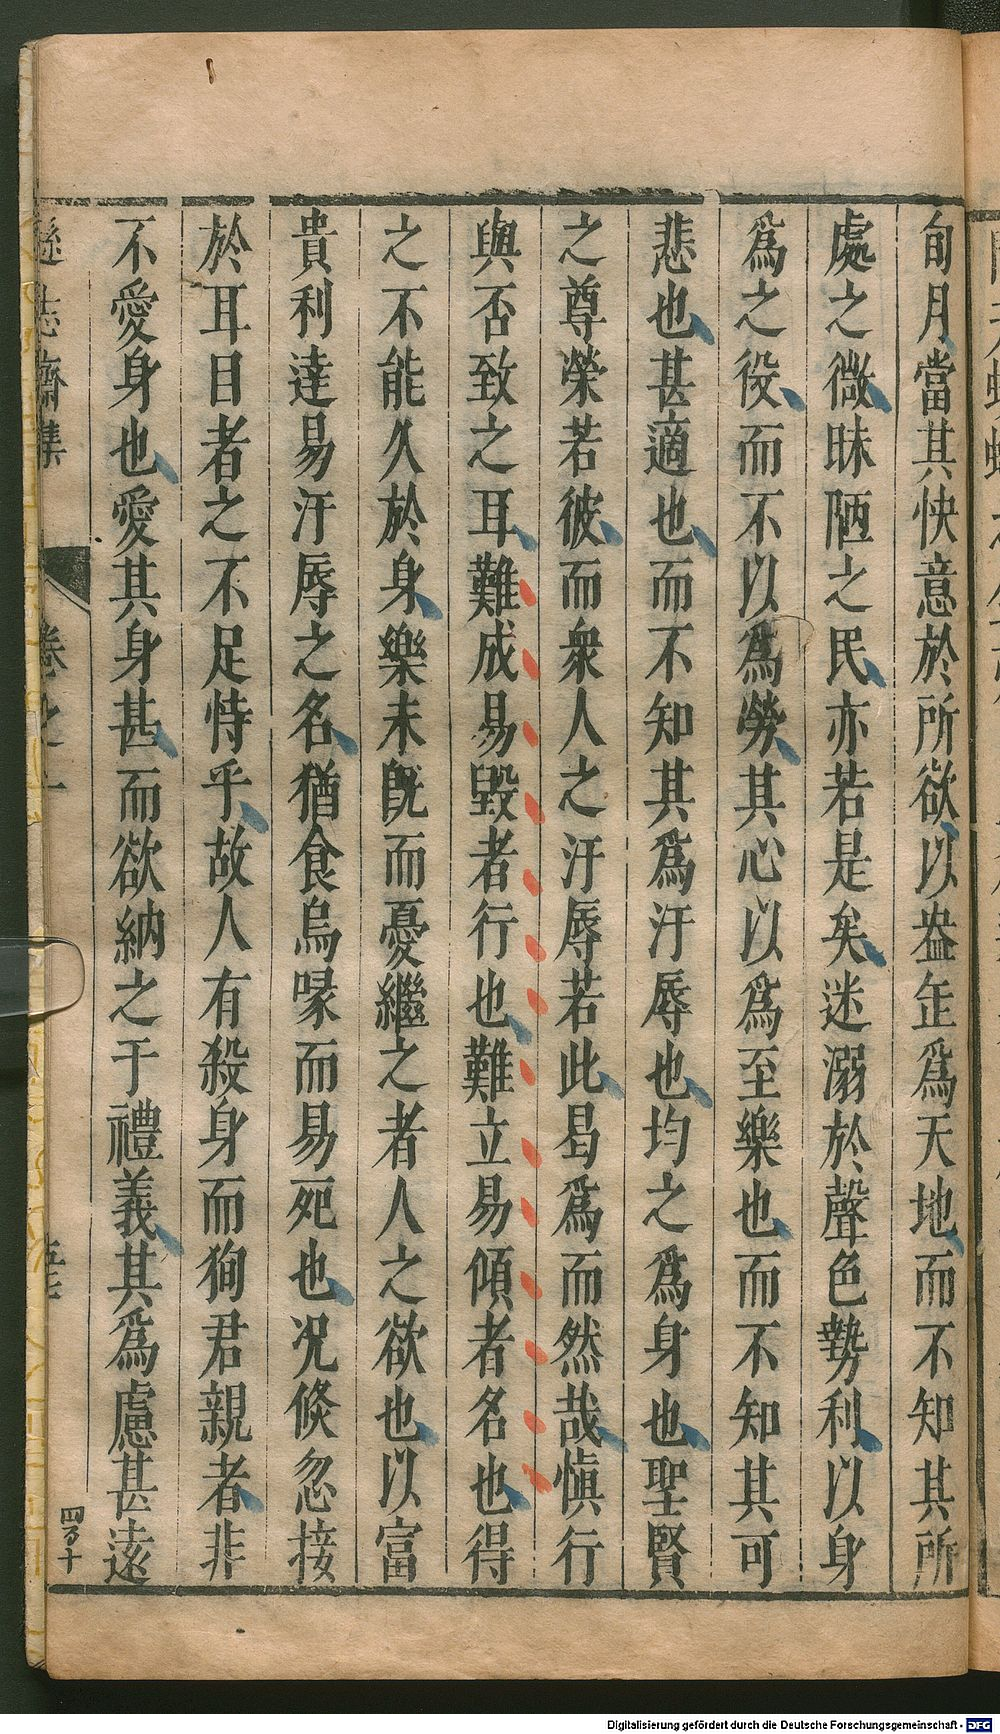 旬月當其快意於所欲以盎缶爲天地而不知其所
處之微昧陋之民亦若是矣迷溺於聲色勢利以身
爲之役而不以爲勞其心以爲至樂也而不知其可
悲也甚適也而不知其爲汙辱也均之爲身也聖賢
之尊榮若彼而衆人之汙辱若此曷爲而然哉愼行
與否致之耳難成易毀者行也難立易傾者名也得
之不能久於身樂未旣而憂繼之者人之欲也以富
貴利達易汙辱之名猶食烏喙而易死也況倐忽接
於耳目者之不足恃乎故人有殺身而狥君親者非
不愛身也愛其身甚而欲納之于禮義其爲慮甚遠
遜志齋集
卷之一
四百十
Digitalisierung gefördert durch die Deutsche Forschungsgemeinschaft - DFG